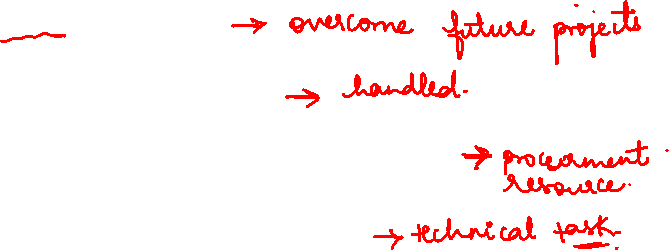 → overcome future projects
→ handled.
→ procerment
resource.
→ technical task